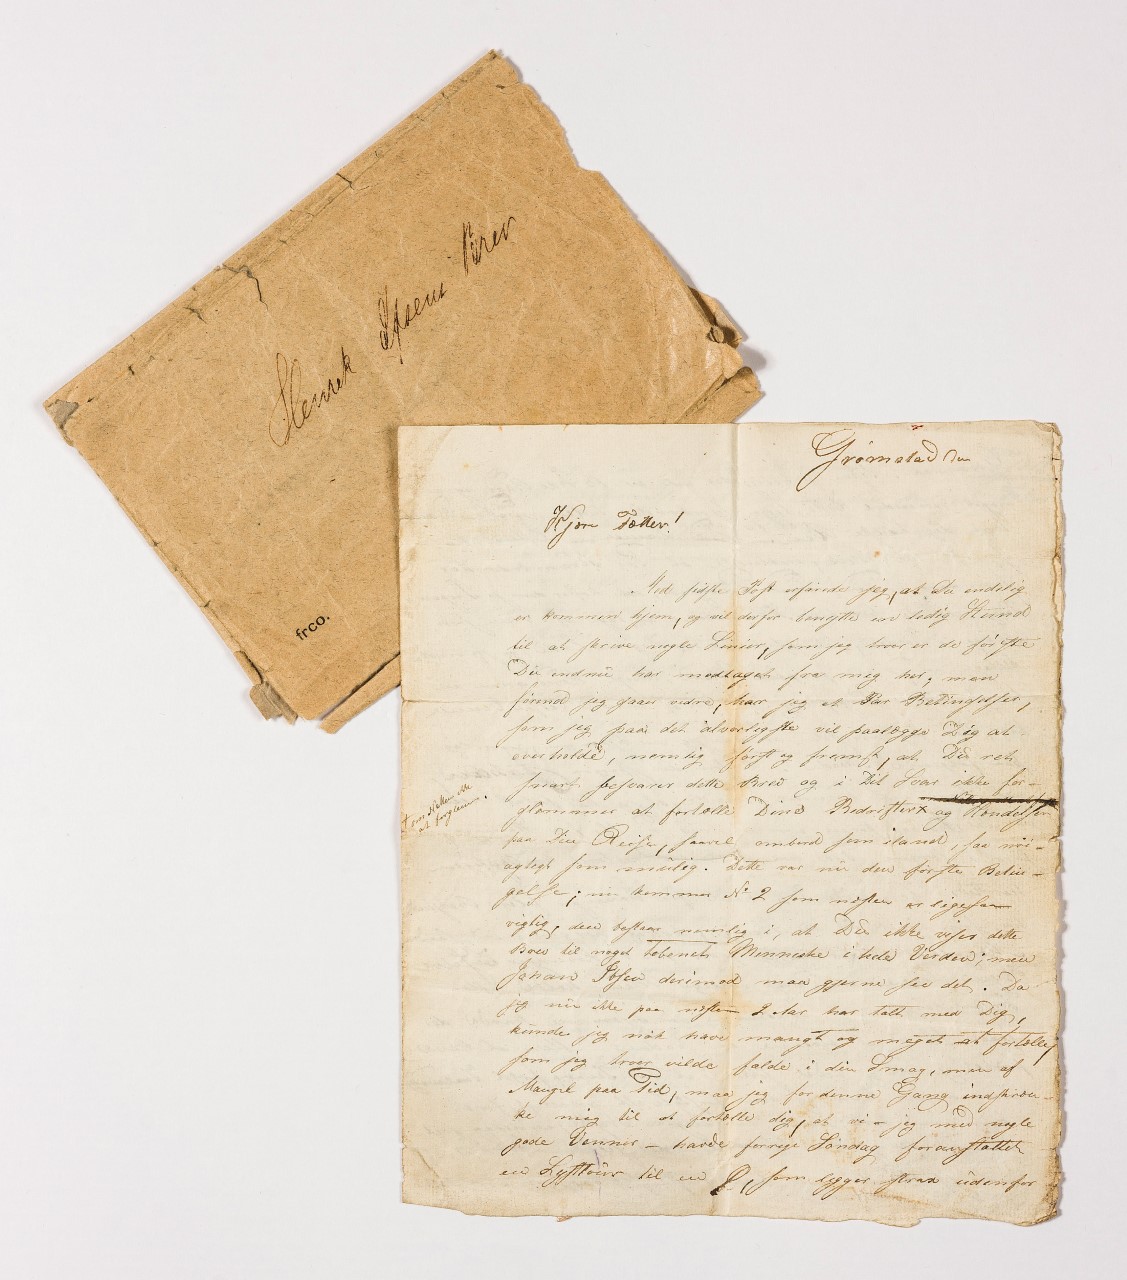 Henrik Ibsens Brev
frco.
Grømstad den
Kjære Fætter!
Med sidste Post erfarede jeg, at Du endelig
er kommen hjem, og vil derfor benytte en ledig Stund
til at skrive nogle Linier, som jeg troer er de første
Du endnu har modtaget fra mig her; men
førend jeg gaar vidre, har jeg et Par Betingelser,
som jeg paa det alvorligste vil paalægge Dig at
overholde, nemlig først og fremst, at Du ret
snart besvarer dette Brev og i Dit Svar ikke for-
glemmer at fortælle Dine Bedrifter x og Hændelser
paa Din Reise, saavel ombord som iland, saa nøi-
agtigt som mulig. Dette var nu den første Betin-
gelse; nu kommer No 2 som næsten er ligesaa
vigtig, den bestaar nemlig i, at Du ikke viser dette
Brev til noget lebenes Menneske i hele Verden; men
Johan Ibsen derimod maa gjerne see det. Da
jeg nu ikke paa næsten 2 Aar har talt med Dig,
kunde jeg nok have mangt og meget at fortælle,
som jeg troer vilde falde i din Smag, men af
Mangel paa Tid, maa jeg for denne Gang indskræn-
ke mig til at fortælle dig, at vi – jeg med nogle
gode Venner – havde forrige Søndag foranstaltet
en Lysttour til en Ø, som ligger strax udenfor